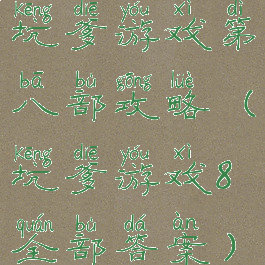 kēng diē yóu xì dì
坑爹游戏第
bā bù gōng lüè
八部攻略（
kēng diē yóu xì
坑爹游戏8
quán bù dá àn
全部答案）